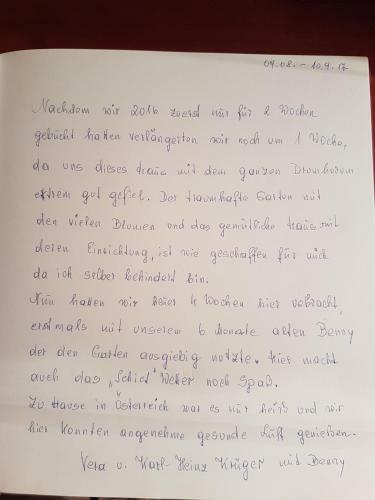 09.08. – 10.9. 17
Nachdem wir 2016 zuerst nur für 2 Wochen
gebucht hatten verlängerten wir noch um 1 Woche,
da uns dieses Haus mit dem ganzen Drumherum
extrem gut gefiel. Der traumhafte Garten mit
den vielen Blumen und das gemütliche Haus mit
deren Einrichtung, ist wie geschaffen für mich
da ich selber behindert bin.
Nun hatten wir heuer 4 Wochen hier vebracht,
erstmals mit unserem 6 Monate alten Benny
der den Garten ausgiebig nutzte. Hier macht
auch das „Schiet" Wetter noch Spaß.
Zu Hause in Österreich war es nur heiß und wir
hier konnten angenehme gesunde Luft genießen.
Vera u. Karl-Heinz Krüger mit Benny